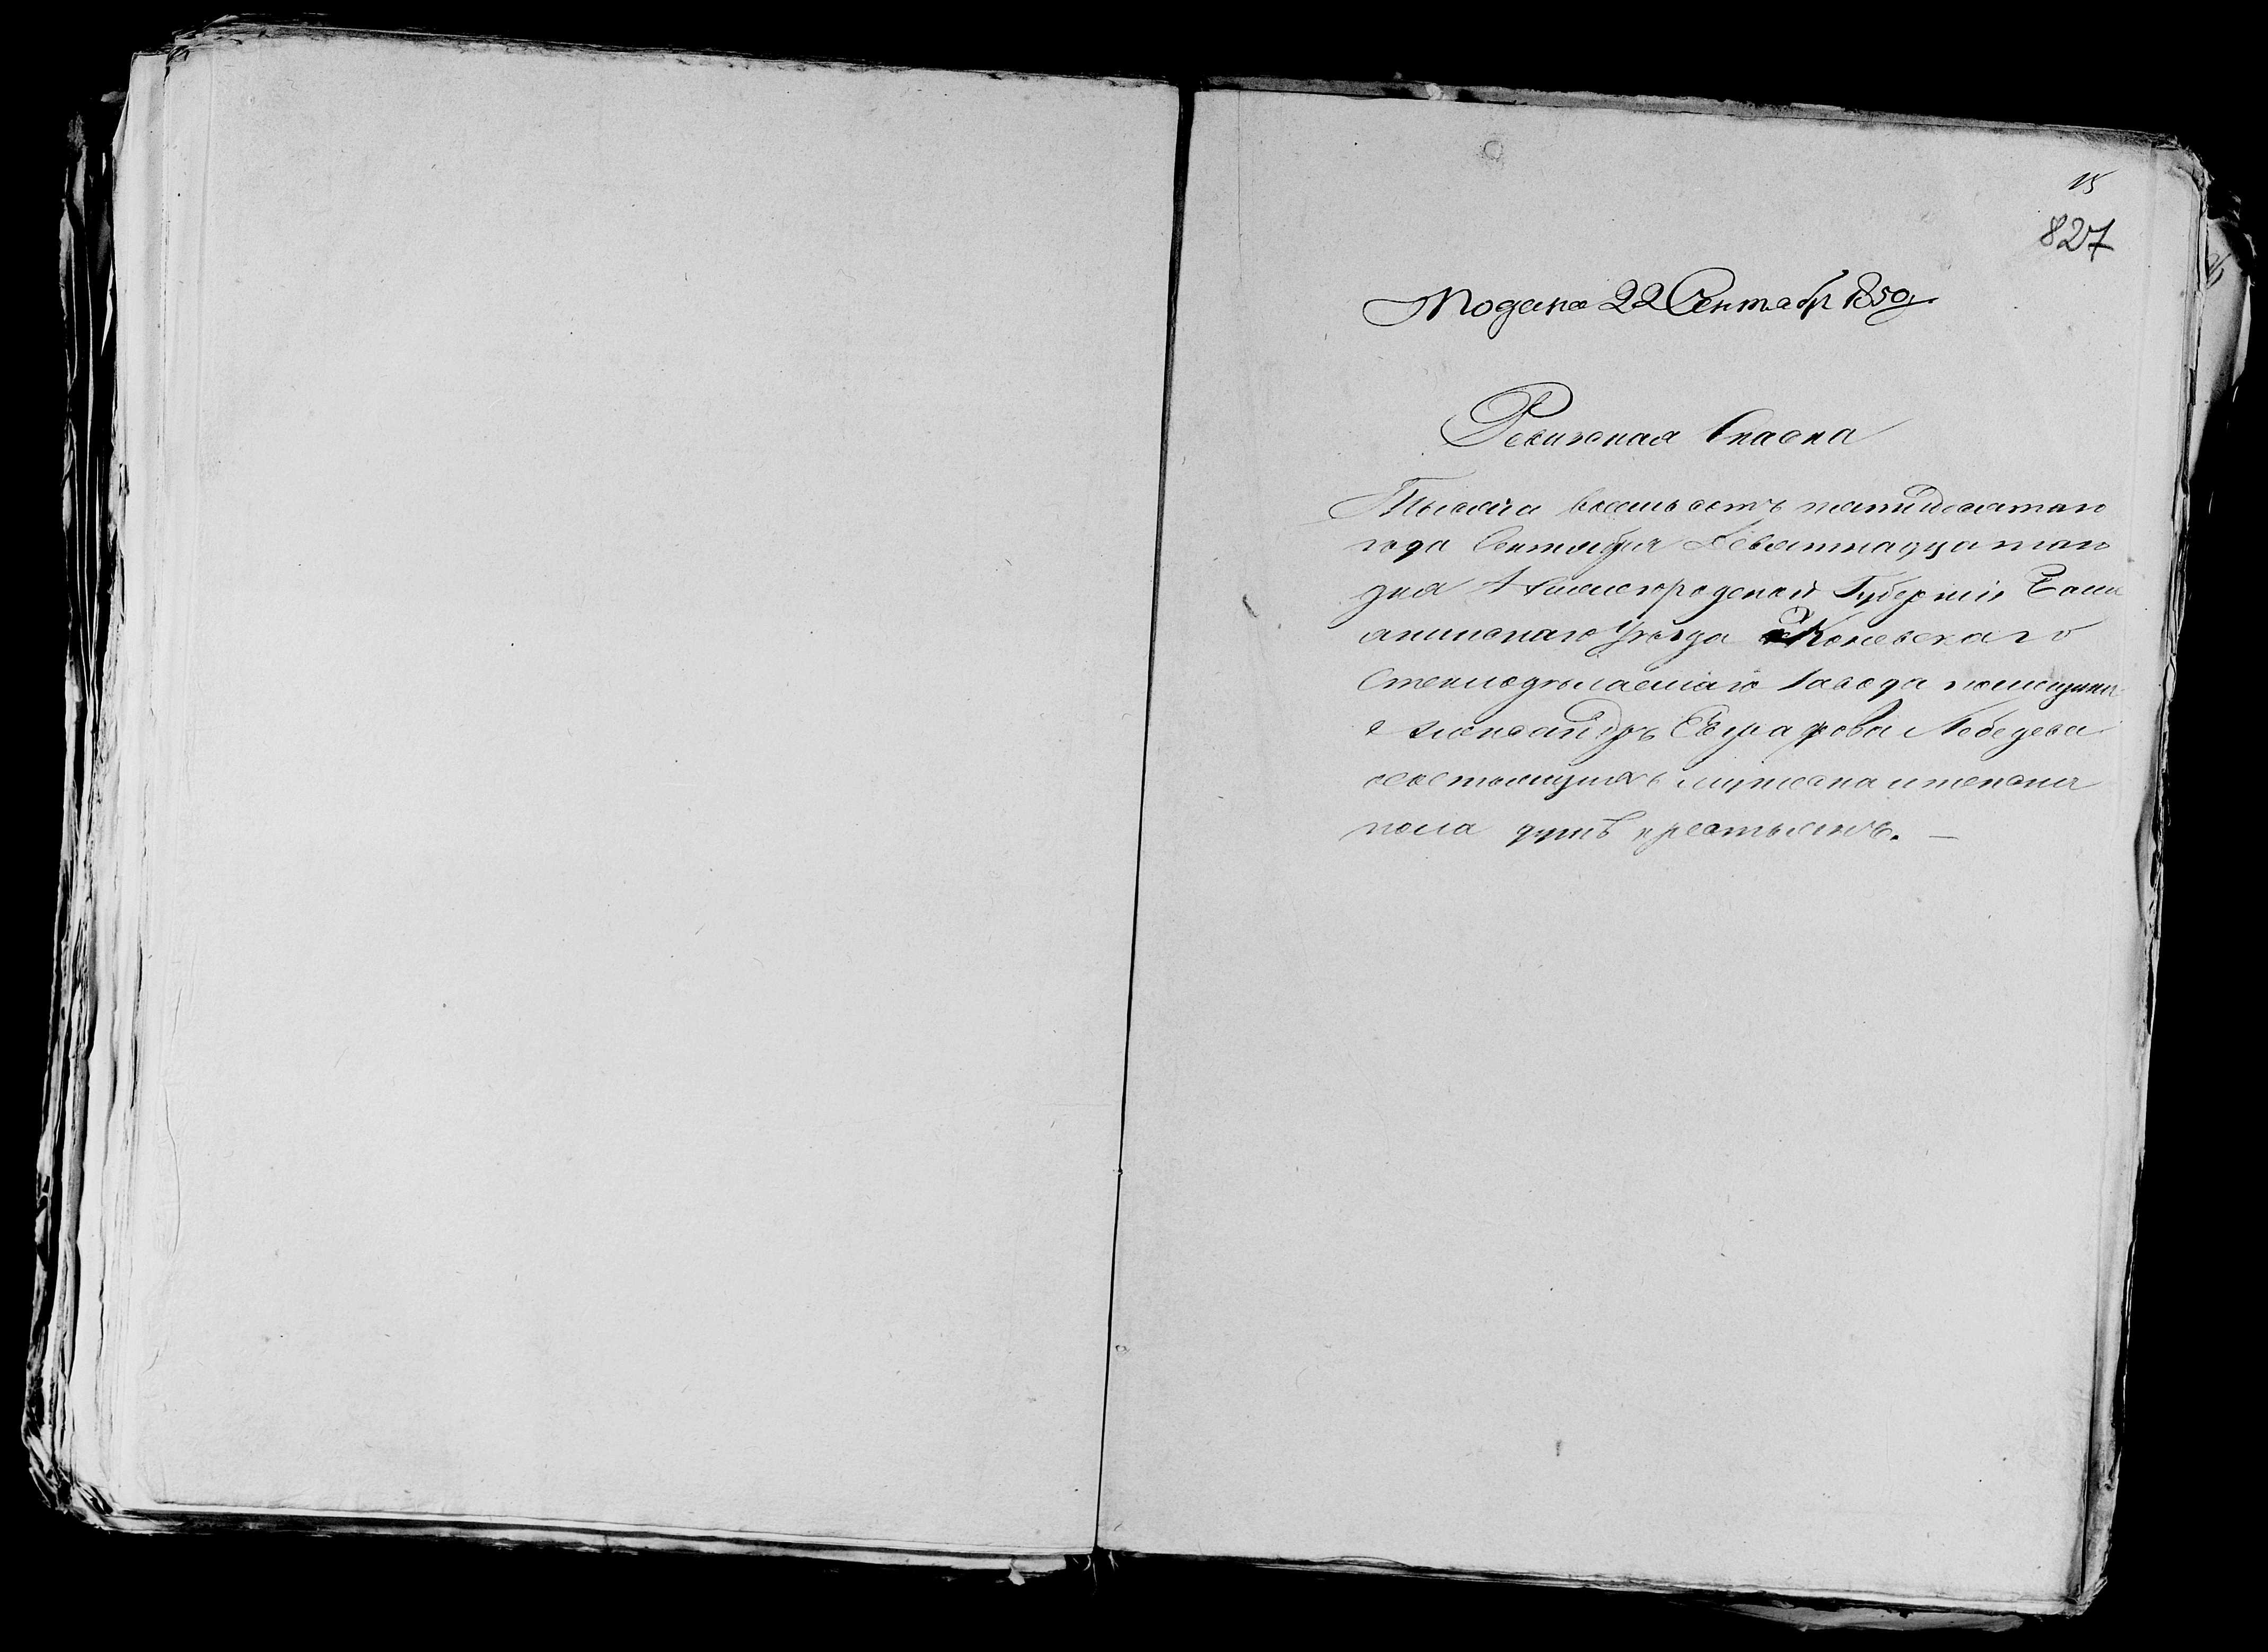 15
827
Подана 22 Сентябр 1850 г.
Ревизская Сказка
Тысяча восемь сотъ пятидесятаго
года Сентября Девятнадцатаго
дня Нижегородской Губерніи Бала
хнинскаго Уѣзда Коневскаго
Стеклодѣлаемаго Завода помещика
Александръ Евграфова Лебедева
состоящихъ мужска и женска
пола душъ крестьянъ. —